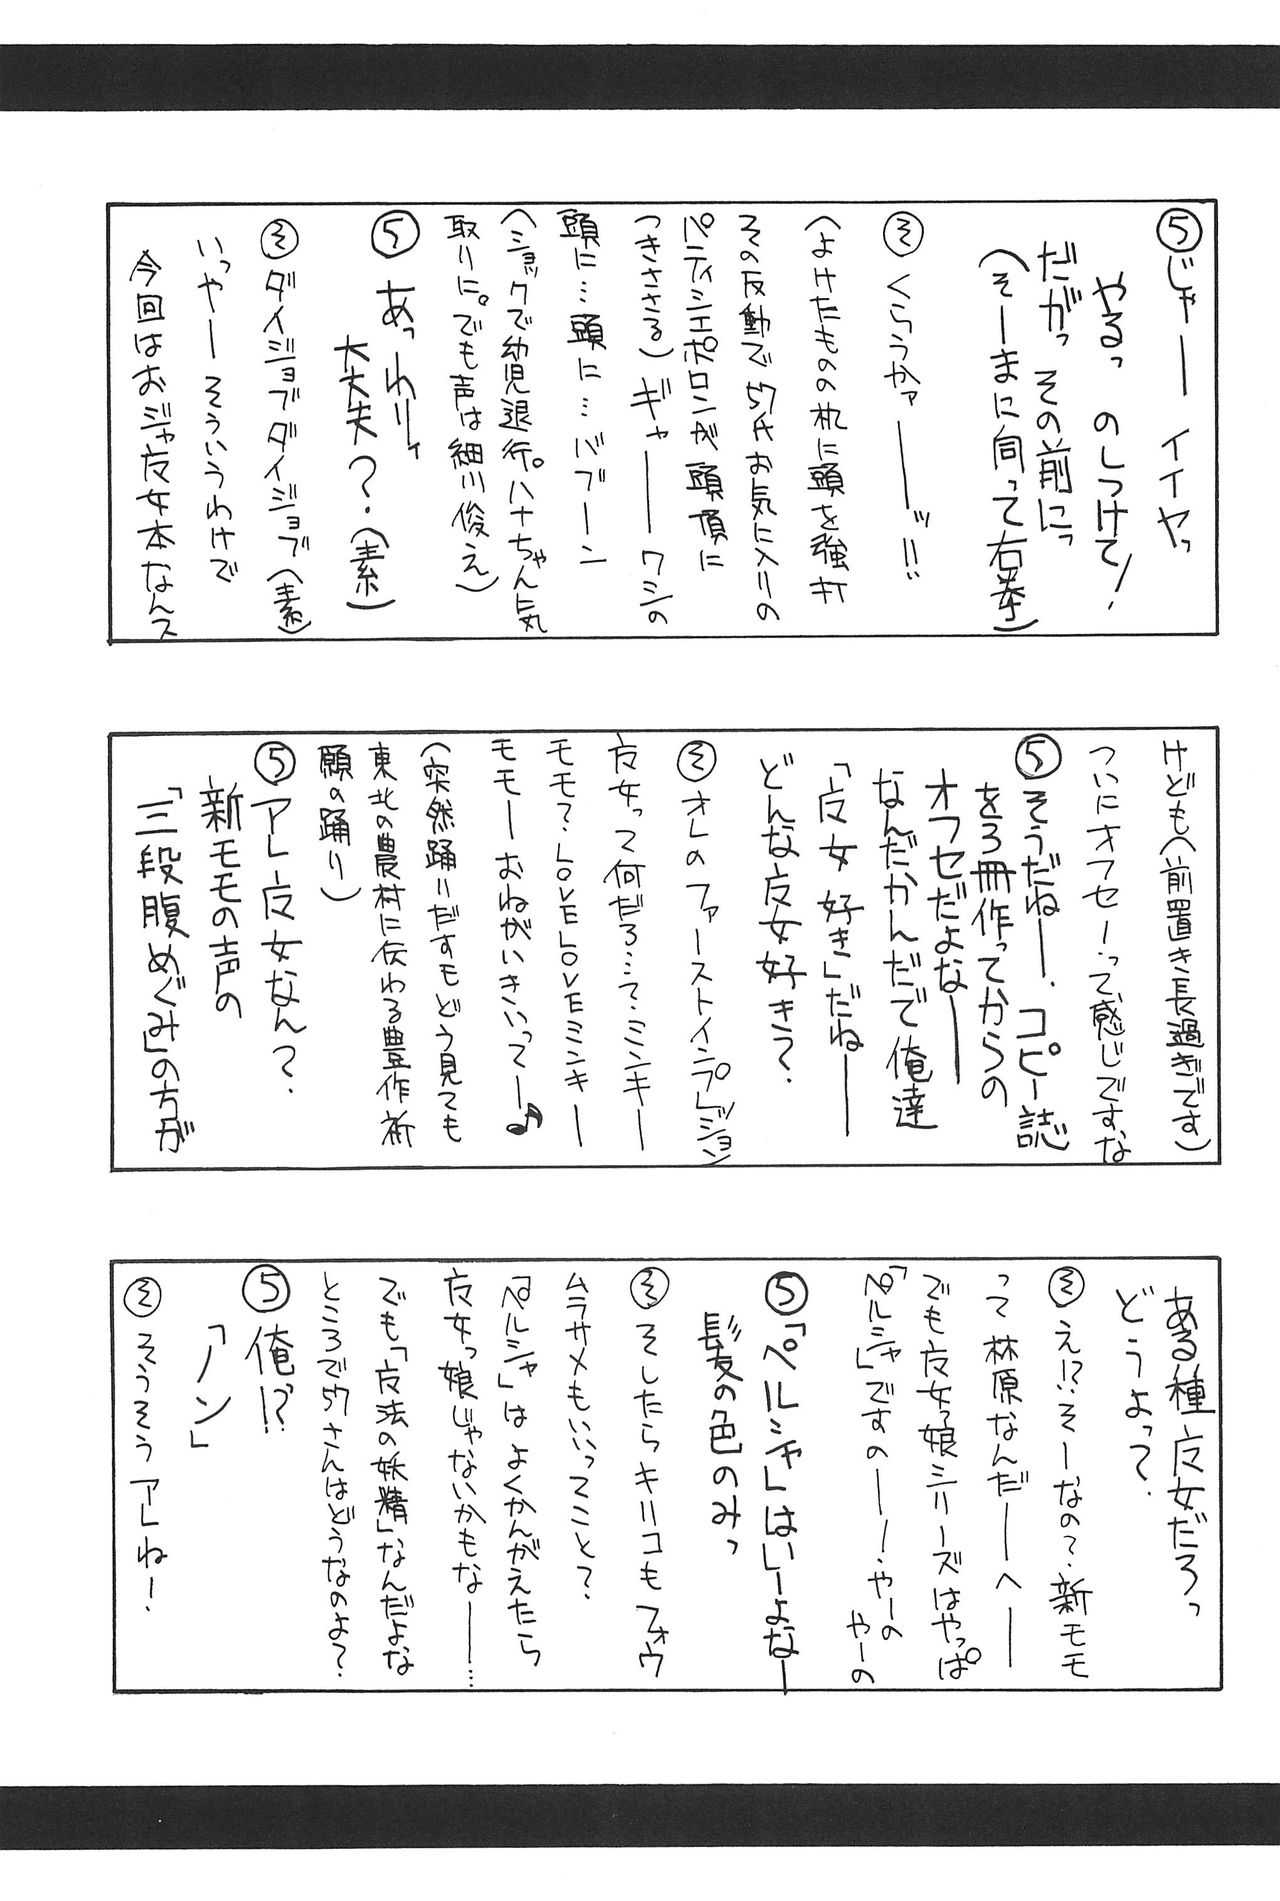 ⑤じゃー イイヤっ
やるっ のしつけて!
だがっ その前にっ
(そーまに向って右拳)
㋞くらうかァーーッ!!
(よけたものの机に頭を強打
その反動で57氏お気に入りの
パティシエポロンが頭頂に
つきささる)ギャーーワシの
頭に…頭に…バブーン
(ショックで幼児退行。ハナちゃん気
取りに。でも声は細川俊え)
⑤ あっわりィ
大丈夫?.(素)
㋞ダイジョブダイジョブ(素)
いっやーそういうわけで
今回はおジャ女本なんス
けども(前置き長過ぎです)
ついにオフセーって感じですな
⑤そうだねー. コピー誌
を3冊作ってからの
オフセだよなー
なんだかんだで俺達
「女好き」だねー
どんな女好き?.
㋞オレのファーストインプレッション
女って何だろ…?.ミンキー
モモ?.LOVELOVEミンキー
モモーおねがいきいってー♪
(突然踊りだすもどう見ても
東北の農村に伝わる豊作祈
願の踊り)
⑤アレ女なん?.
新モモの声の
「三段腹めぐみ」の方が
ある種女だろっ
どうよって?.
㋞え!?そーなの?.新モモ
って林原なんだーへー
でも女っ娘シリーズはやっぱ
「ペルシャ」ですのー!.やーの
やーの
⑤「ペルシャ」はいーよなー
髪の色のみっ
㋞そしたらキリコもフォウ
ムラサメもいいってこと?.
「ペルシャ」はよくかんがえたら
女っ娘じゃないかもなー…
でも「法の妖精」なんだよな
ところで57さんはどうなのよ?.
⑤俺!?
「ノン」
㋞そうそうアレねー.